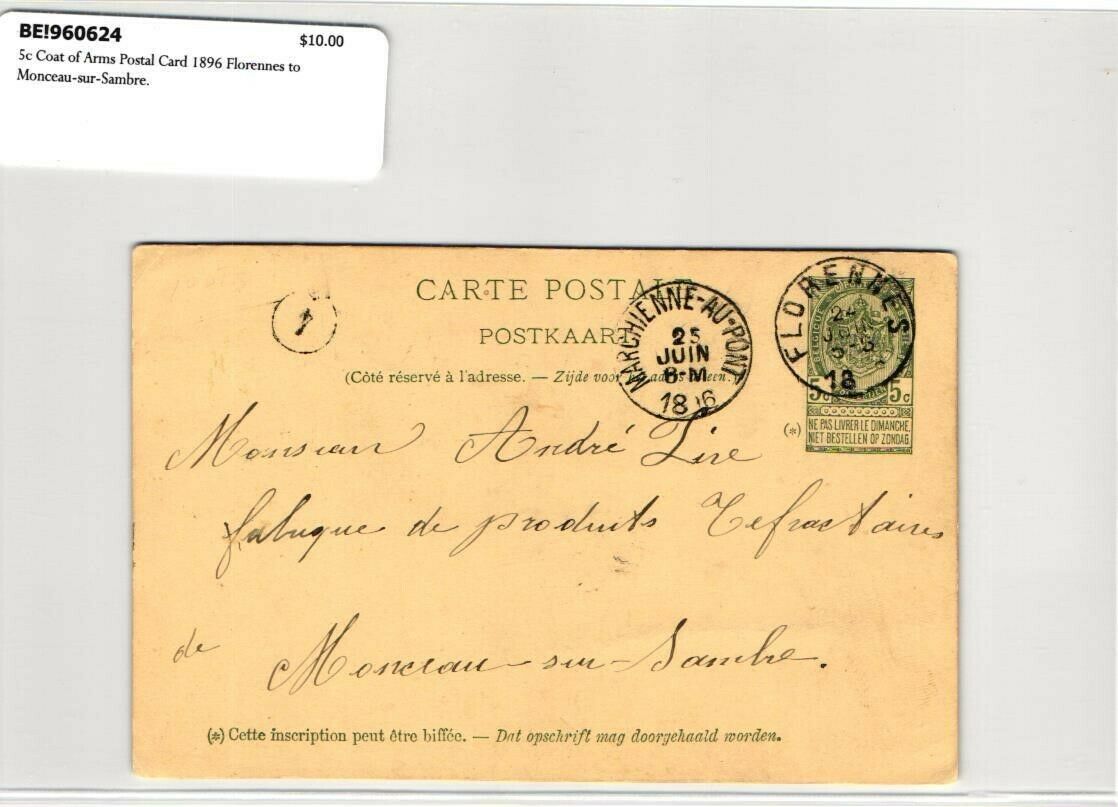 BE!960624
$10.00
5c Coat of Arms Postal Card 1896 Florennes to
Monceau-sur-Sambre.
CARTE POSTALE
POSTKAART
(Côté réservé à l'adresse. — Zijde voor
4
MARCHIENNE-AU-PONT
25
JUIN
8-M
18 6
FLORENNES
24
18
BELGIQUE
5c 5c
(*) NE PAS LIVRER LE DIMANCHE.
NIET BESTELLEN OP ZONDAG.
Monsieur André
fabrique de produits refractaires
de
Monceau-sur-Sambre.
(*) Cette inscription peut être biffée. — Dat opschrift mag doorgehaald worden.